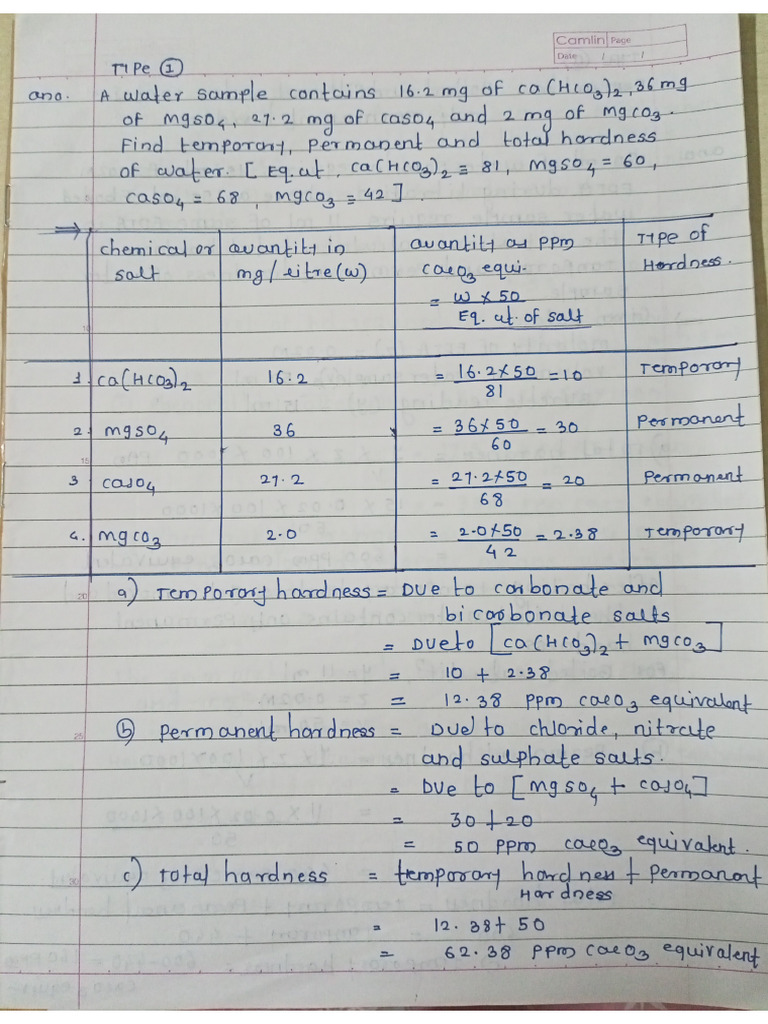 Camlin Page
Date / /
TYPE ①
ano. A water sample contains 16.2 mg of ca(HCO3)2, 36 mg
of MgSO4, 27.2 mg of CaSO4 and 2 mg of MgCO3.
Find temporary, permanent and total hardness
of water. [Eq. wt, Ca(HCO3)2 = 81, MgSO4 = 60,
CaSO4 = 68, MgCO3 = 42].
⇒ chemical or salt | Quantity in mg/litre (w) | Quantity as PPM CaCO3 equi. = w × 50 / Eq. wt. of salt | Type of Hardness.
1 Ca(HCO3)2 | 16.2 | = 16.2×50 / 81 = 10 | Temporary
2. MgSO4 | 36 | = 36×50 / 60 = 30 | Permanent
3 CaSO4 | 27.2 | = 27.2×50 / 68 = 20 | Permanent
4. MgCO3 | 2.0 | = 2.0×50 / 42 = 2.38 | Temporary
a) Temporary hardness = Due to carbonate and
bicarbonate salts
= Due to [Ca(HCO3)2 + MgCO3]
= 10 + 2.38
= 12.38 PPM CaCO3 equivalent
b) Permanent hardness = Due to chloride, nitrate
and sulphate salts.
= Due to [MgSO4 + CaSO4]
= 30+20
= 50 PPM CaCO3 equivalent.
c) Total hardness = temporary hardness + Permanent
Hardness
= 12.38+ 50
= 62.38 PPM CaCO3 equivalent